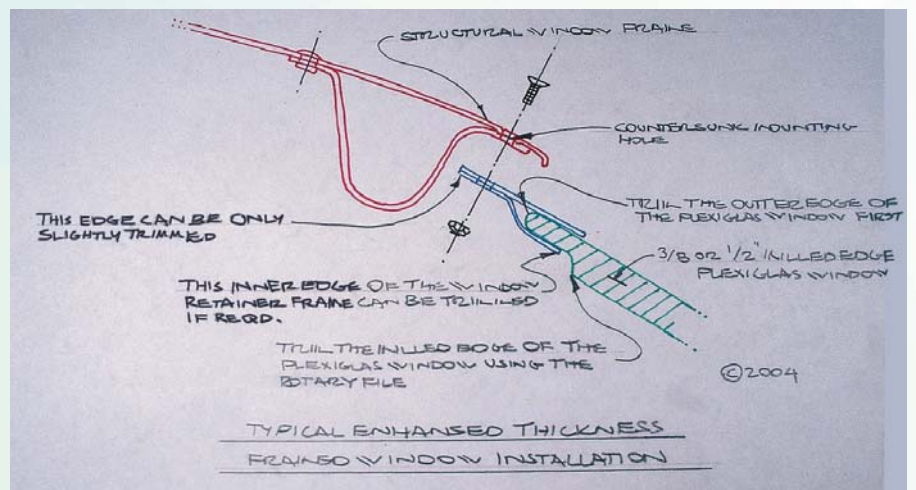 STRUCTURAL WINDOW FRAME
COUNTERSUNK MOUNTING
HOLE
TRIM THE OUTER EDGE OF
THE PLEXIGLAS WINDOW FIRST
THIS EDGE CAN BE ONLY
SLIGHTLY TRIMMED
3/8 OR 1/2" MILLED EDGE
PLEXIGLAS WINDOW
THIS INNER EDGE OF THE WINDOW
RETAINER FRAME CAN BE TRIMMED
IF REQD.
TRIM THE MILLED EDGE OF THE
PLEXIGLAS WINDOW USING THE
ROTARY FILE
©2004
TYPICAL ENHANSED THICKNESS
FRAMED WINDOW INSTALLATION